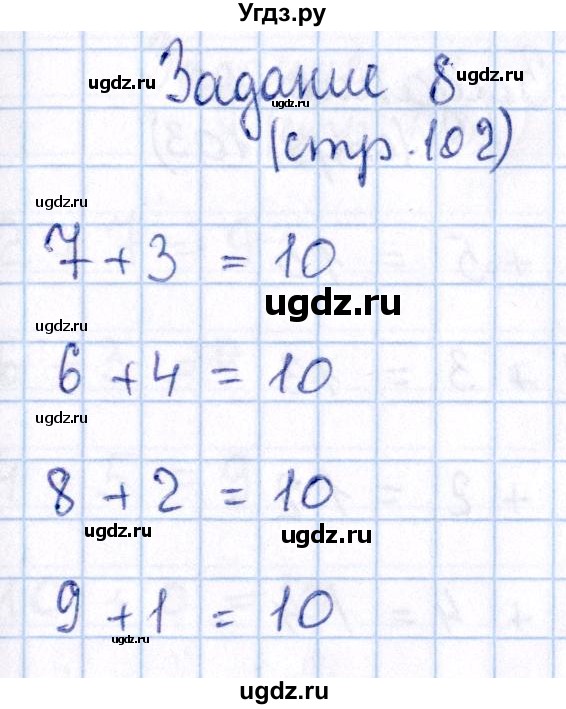 Угдз.ру
Задание 8
(стр. 102)
7 + 3 = 10
6 + 4 = 10
8 + 2 = 10
9 + 1 = 10
ugdz.ru
ugdz.ru
ugdz.ru
ugdz.ru
ugdz.ru
ugdz.ru
ugdz.ru
ugdz.ru
ugdz.ru
ugdz.ru
ugdz.ru
ugdz.ru